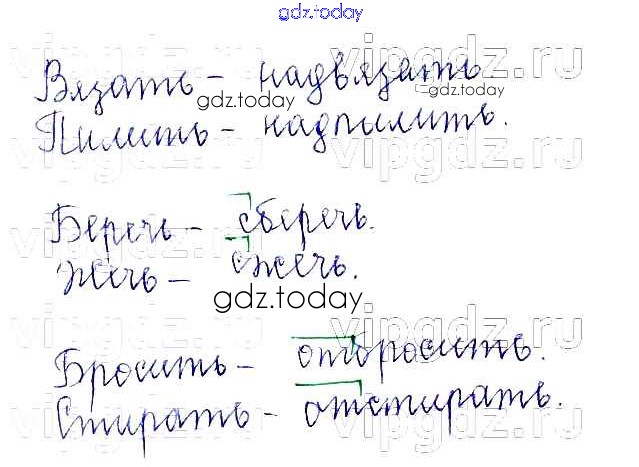 gdz.today
vipgdz.ru vipgdz.ru
Вязать – надвязать
gdz.today gdz.today
Пилить – надпилить.
vipgdz.ru vipgdz.ru
Беречь – сберечь.
vipgdz.ru vipgdz.ru
Жечь – сжечь.
gdz.today
vipgdz.ru vipgdz.ru
Бросить – отбросить.
gdz.today gdz.today
Стирать – отстирать.
vipgdz.ru vipgdz.ru